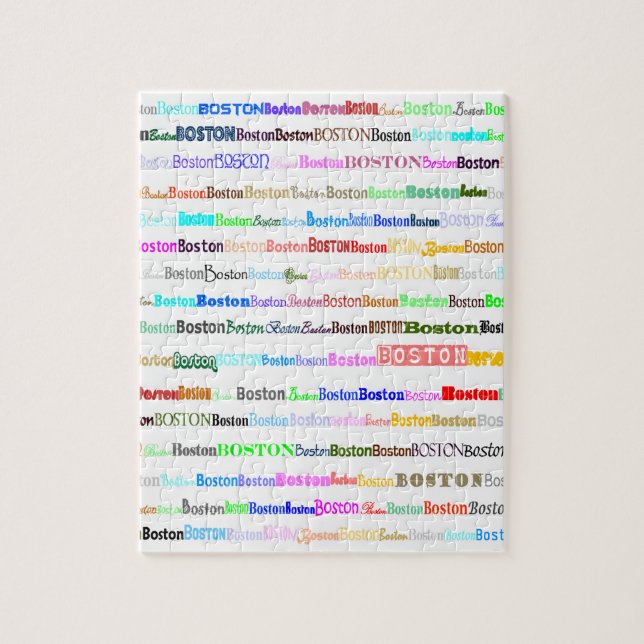 Boston Boston BOSTON Boston Boston Boston Boston Boston Boston Boston
Boston Boston BOSTON Boston Boston BOSTON Boston Boston Boston Boston
Boston Boston BOSTON Boston Boston BOSTON Boston Boston
Boston Boston Boston Boston Boston Boston Boston Boston Boston
Boston Boston Boston Boston Boston Boston Boston Boston Boston Boston
Boston Boston Boston Boston Boston Boston Boston Boston Boston
Boston Boston Boston Boston Boston Boston BOSTON Boston Boston
Boston Boston Boston Boston Boston Boston Boston Boston
Boston Boston Boston Boston Boston Boston BOSTON Boston Boston
Boston Boston Boston Boston Boston BOSTON Boston
Boston Boston Boston Boston Boston Boston Boston Boston Boston
Boston Boston Boston Boston Boston Boston Boston Boston Boston
Boston Boston BOSTON Boston Boston Boston BOSTON Boston
Boston Boston Boston Boston Boston Boston BOSTON Boston
Boston Boston Boston Boston Boston Boston Boston Boston Boston Boston
Boston Boston Boston Boston Boston Boston Boston Boston Boston